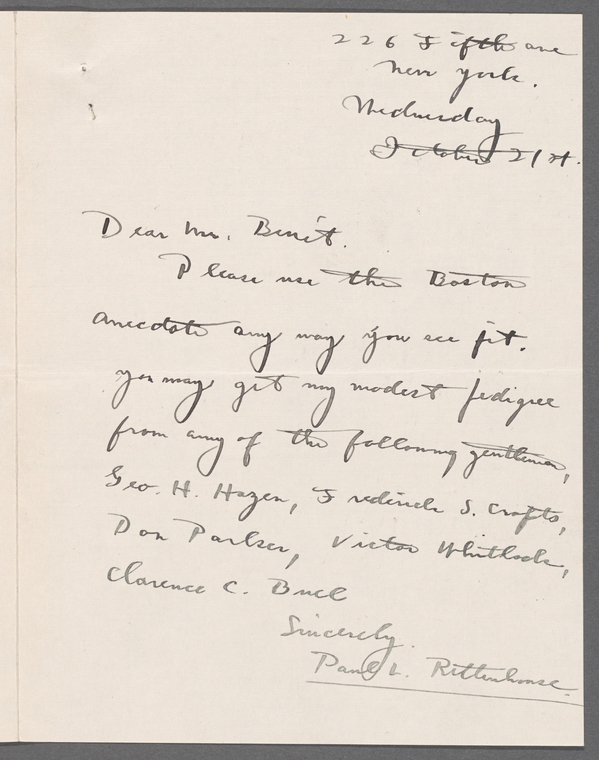 226 Fifth ave
New York.
Wednesday
October 21st.
Dear Mr. Benét.
Please use the Boston
anecdote any way you see fit.
you may get my modest pedigree
from any of the following gentlemen,
Geo. H. Hazen, Frederick S. Crofts,
Don Parker, Victor Whitlock,
Clarence C. Buel
Sincerely.
Paul L. Rittenhouse.